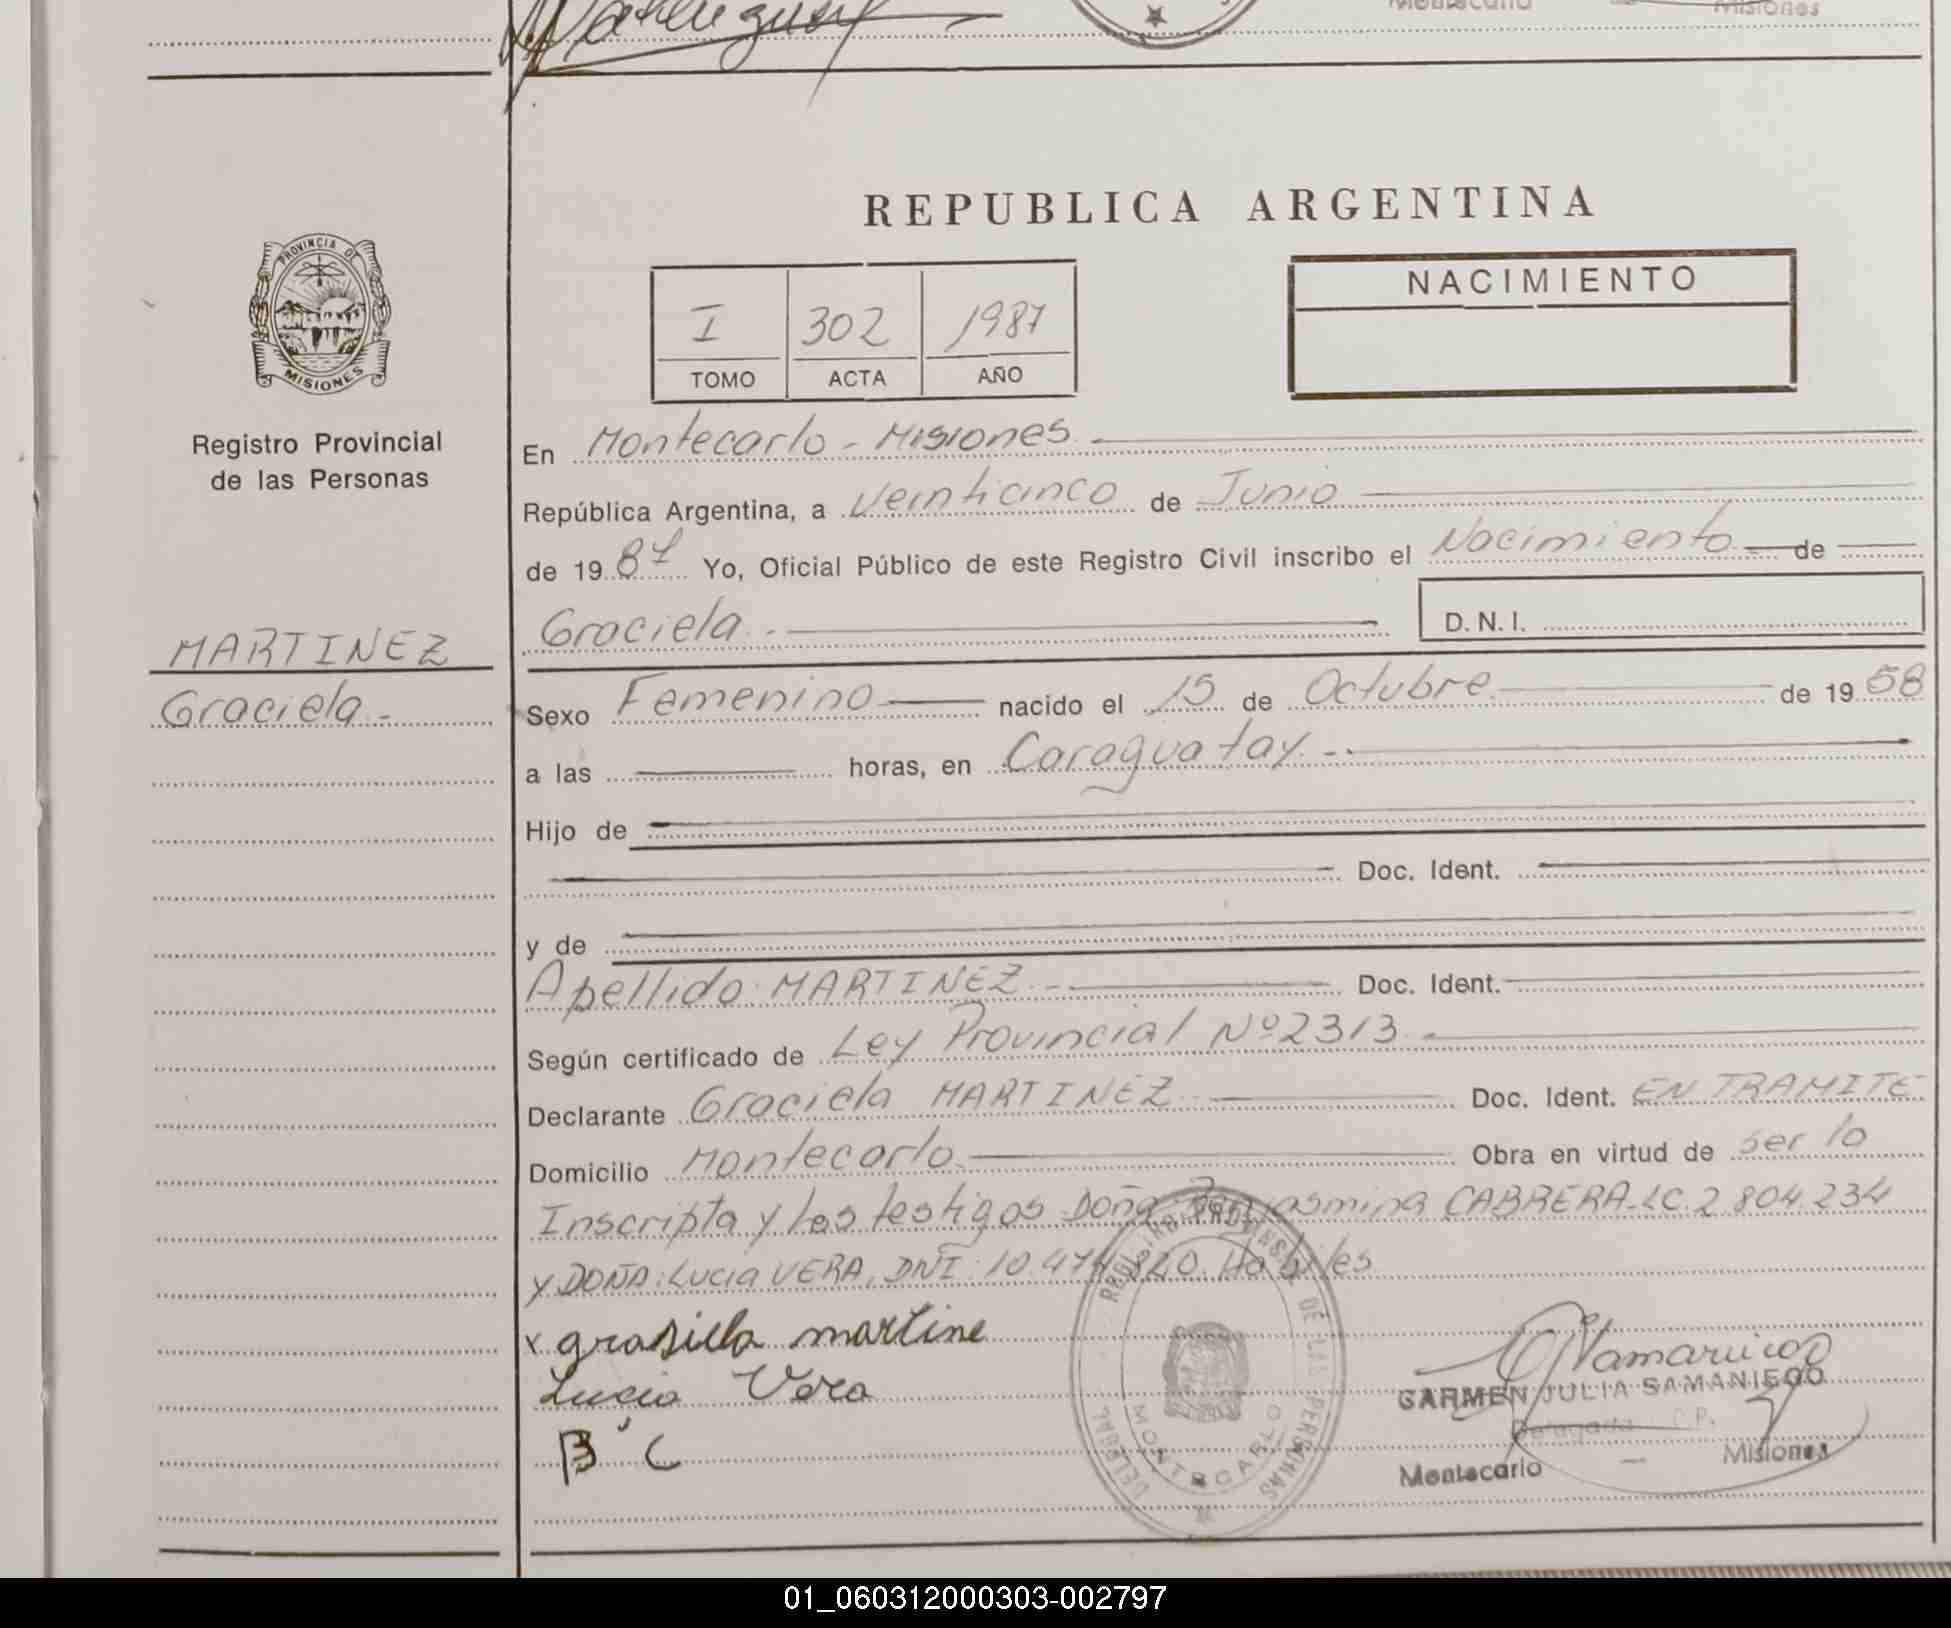 Montecarlo Misiones
REPUBLICA ARGENTINA
PROVINCIA DE
MISIONES
NACIMIENTO
I 302 1987
TOMO ACTA AÑO
Registro Provincial
de las Personas
En Montecarlo - Misiones
República Argentina, a Veinticinco de Junio
de 1987 Yo, Oficial Público de este Registro Civil inscribo el Nacimiento de
Graciela. D.N.I.
MARTINEZ
Graciela.-
Sexo Femenino nacido el 15 de Octubre de 1958
a las horas, en Caraguatay.-
Hijo de
Doc. Ident.
y de
Apellido: MARTINEZ.- Doc. Ident.
Según certificado de Ley Provincial Nº 2313.
Declarante Graciela MARTINEZ Doc. Ident. EN TRAMITE
Domicilio Montecarlo Obra en virtud de ser lo
Inscripta y los testigos Doña CABRERA-LC.2.804.234
y DOÑA: Lucia VERA, DNI: 10.474.820. Habiles
x grasiella martine
Lucia Vera
B C
MONTECARLO
DE LAS PERSONAS
CARMEN JULIA SAMANIEGO
Delegada C.P.
Montecarlo - Misiones
01_060312000303-002797